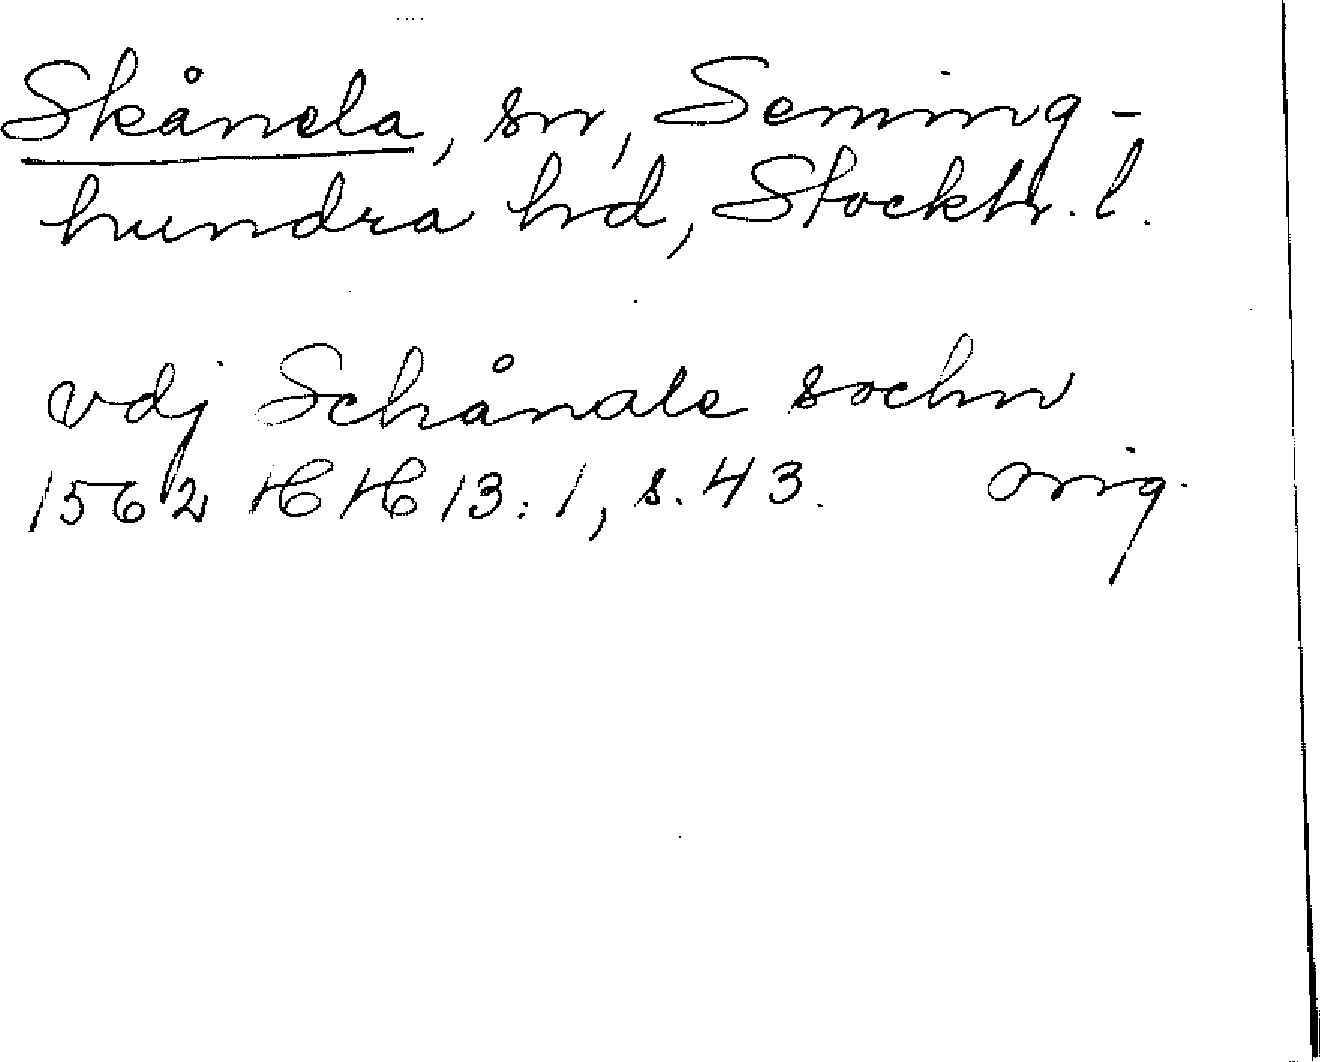 Skånela, sn, Seming-
hundra hd, Stockh. l.
vdj Schånale sochn
1562 HH 13:1, s. 43. orig.